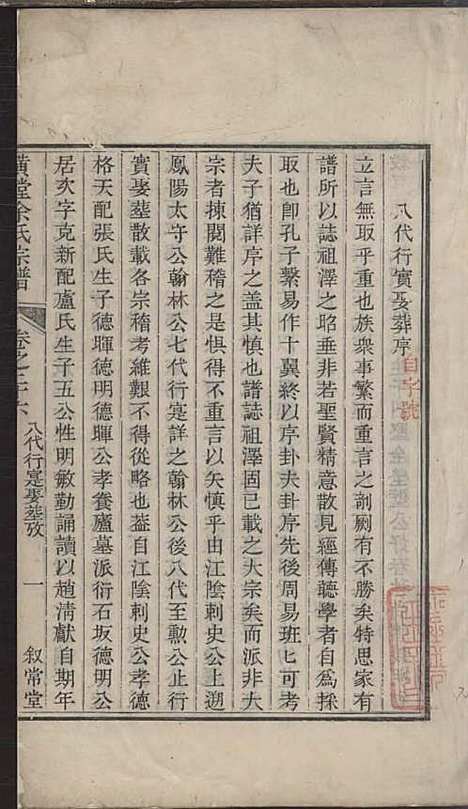 八代行實娶葬序
立言無取乎重也族衆事繁而重言之剞劂有不勝矣特思家有
譜所以誌祖澤之昭垂非若聖賢精意散見經傳聽學者自為採
取也卽孔子繫易作十翼終以序卦夫卦序先後周易班匕可考
夫子猶詳序之蓋其慎也譜誌祖澤固已載之大宗矣而派非大
宗者揀閱難稽之詳序可以矢慎乎由江陰刺史公上遡
鳳陽太守公翰林公七代行寔詳於翰林公後八代至勲公止行
實娶塟散載各宗稽考維艱不得從略也葢自江陰刺史公孝德
格天配張氏生子德暉德明德暉公孝養廬墓派衍石坂德明公
居次字克新配盧氏生子五公性明敏勤誦讀以趙淸獻自期年
橫堂余氏宗譜
卷之二六
八代行寔娶塟攷
一
叙常堂